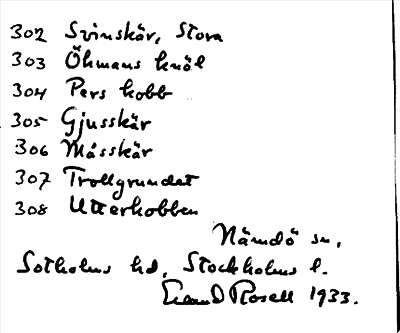 302 Svinskär, Stora
303 Öhmans knöl
304 Pers kobb
305 Gjusskär
306 Måsskär
307 Trollgrundet
308 Utterkobben
Nämdö sn,
Sotholms hd, Stockholms l.
Rosell 1933.